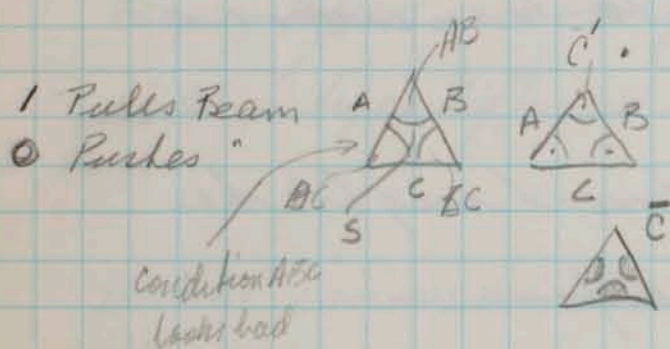 1 Pulls Beam
0 Pushes "
AB
A B
AC C BC
S
Condition ABC
looks bad
C' .
A B
C
C̅